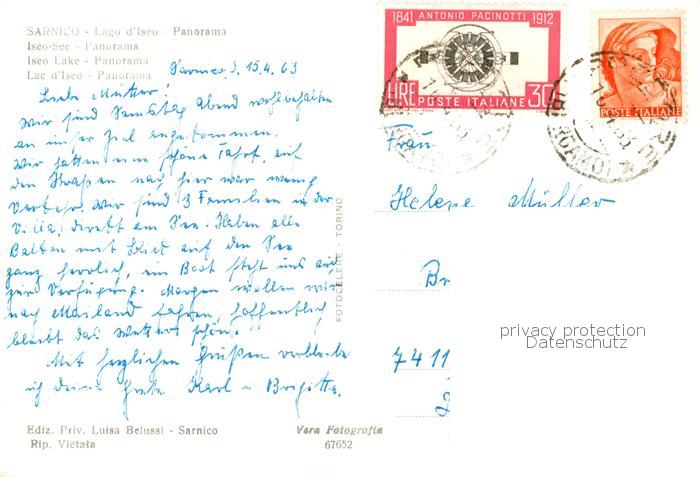 SARNICO - Lago d'Iseo - Panorama
Iseo-See - Panorama
Iseo Lake - Panorama
Lac d'Iseo - Panorama
Sarnico, 15.4.63
Liebe Mutter!
Wir sind Samstag Abend wohlbehalten
an unser Ziel angekommen.
Wir hatten eine schöne Fahrt, auf
den Straßen nach hier war wenig
Verkehr. Wir sind 3 Familien in der
Villa, direkt am See. Haben alle
Balkon mit Blick auf den See
ganz herrlich, ein Boot steht uns auch
zur Verfügung. Morgen wollen wir
nach Mailand fahren, hoffentlich
bleibt das Wetter schön.
Mit herzlichen Grüßen verbleibe
ich deine Grete Karl u Brigitte.
Ediz. Priv. Luisa Belussi - Sarnico
Rip. Vietata
Vera Fotografia
67652
FOTOCELERE - TORINO
1841 ANTONIO PACINOTTI 1912
LIRE POSTE ITALIANE 30
POSTE ITALIANE
Frau
Helene Müller
Br
7411
privacy protection
Datenschutz